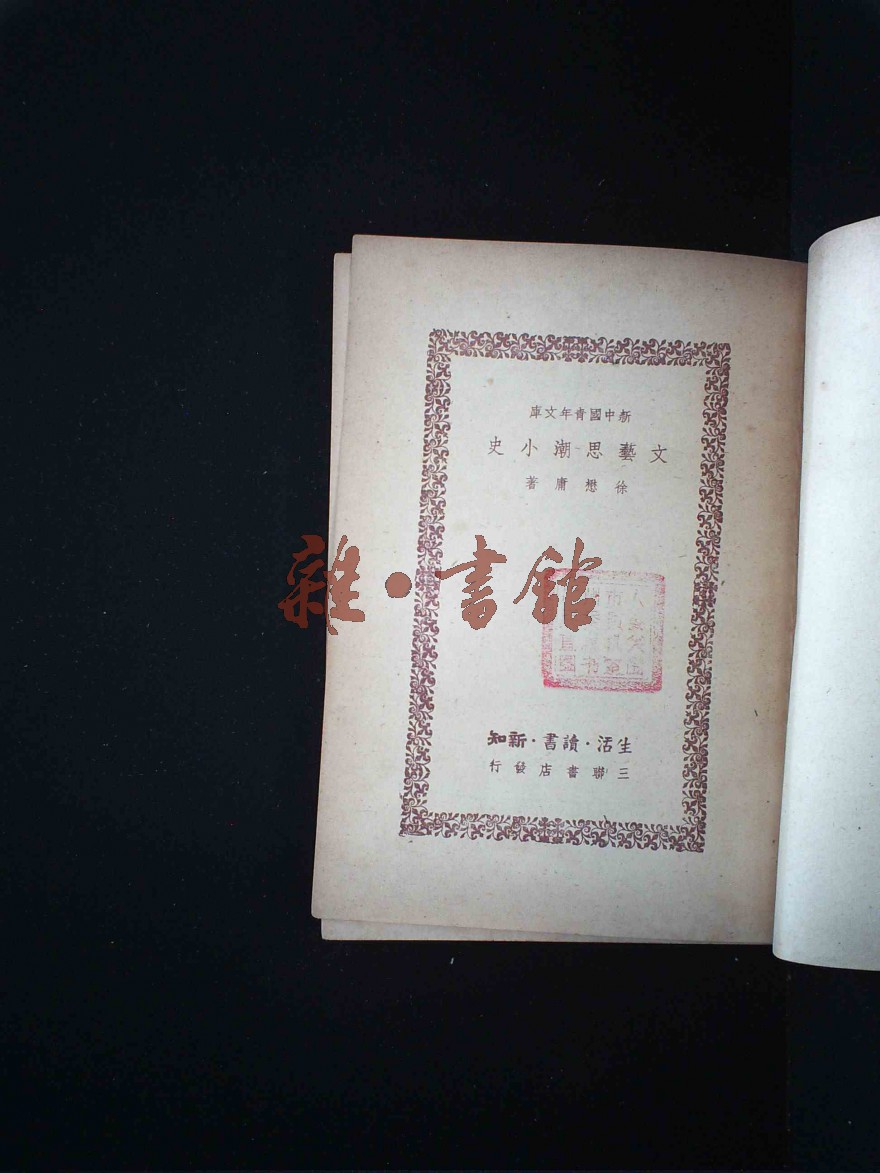 新中國青年文庫
文藝思潮小史
徐懋庸著
雜·書館
生活·讀書·新知
三聯書店發行